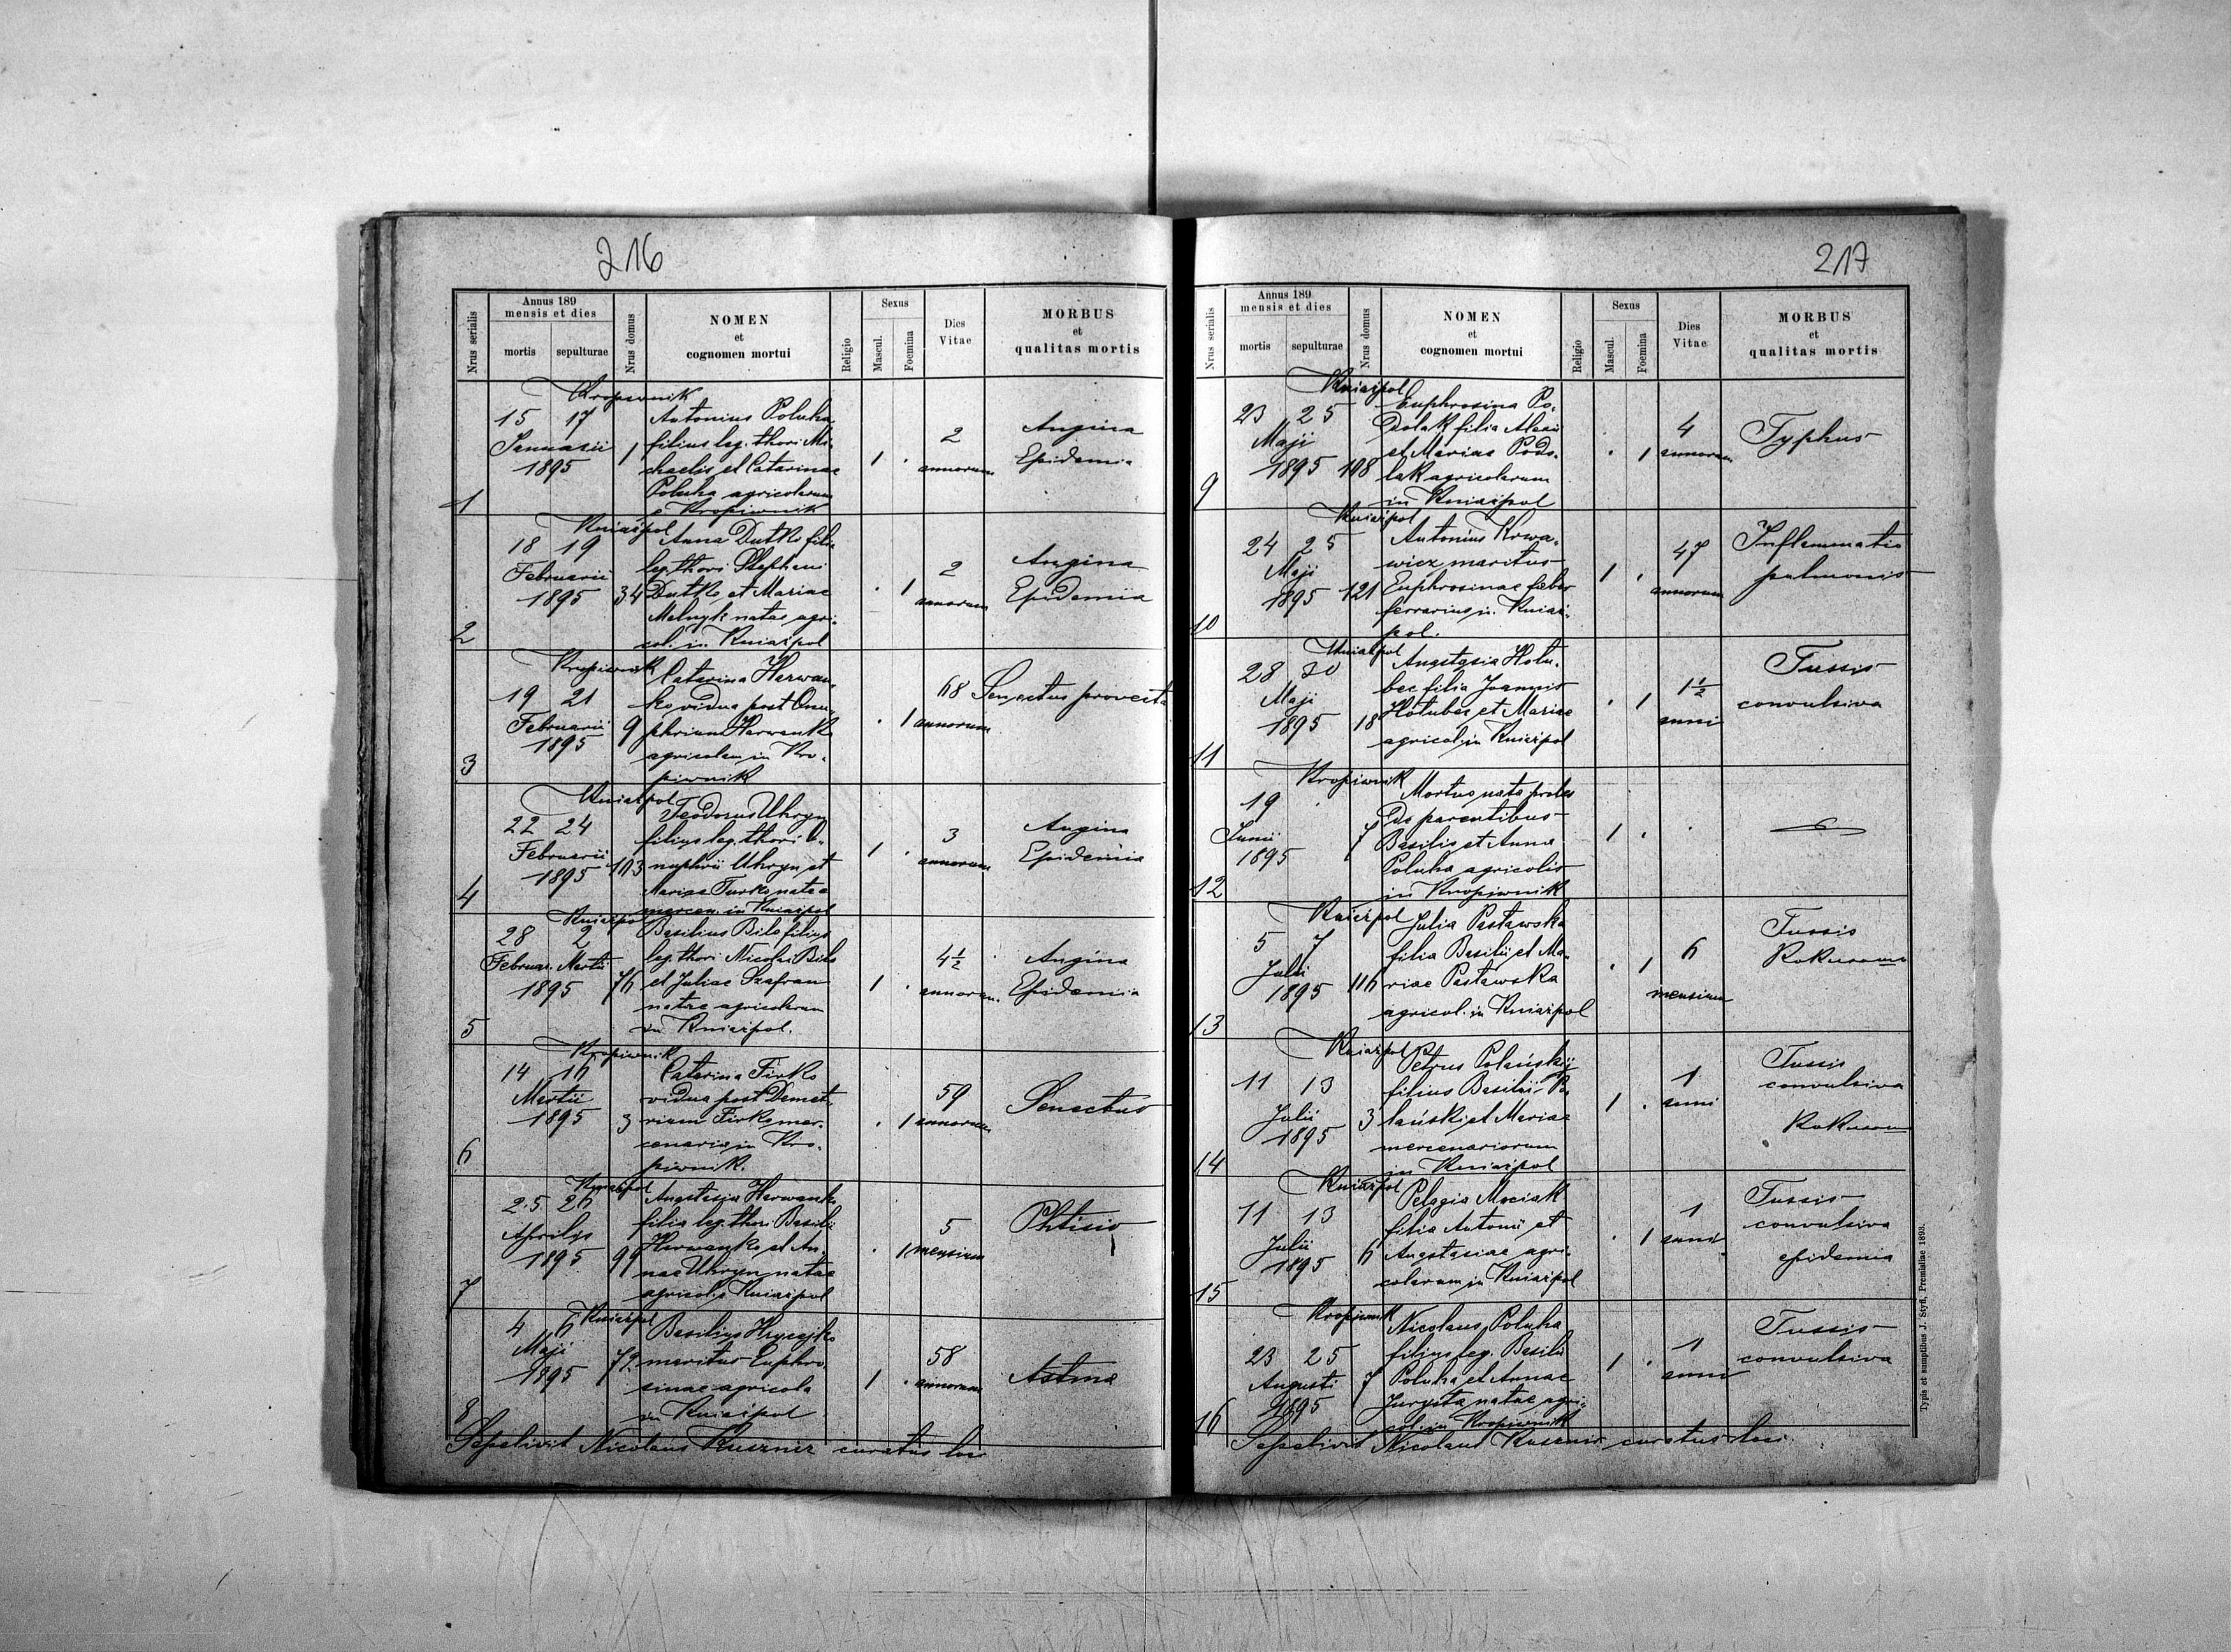 216
Nrus serialis
Annus 189
mensis et dies
mortis
sepulturae
Nrus domus
NOMEN
et
cognomen mortui
Religio
Sexus
Mascul.
Foemina
Dies
Vitae
MORBUS
et
qualitas mortis
Kropiwnik
1
15 17
Januarii
1895
1
Antonius Poluha
filius leg. thori Mi-
chaelis et Catarinae
Poluha agricolarum
e Kropiwnik
1 .
2
annorum
Angina
Epidemia
Kniaźpol
2
18 19
Februarii
1895
34
Anna Dutko filia
leg. thori Stephani
Dutko et Mariae
Melnyk natae agri-
col. in Kniaźpol
. 1
2
annorum
Angina
Epidemiia
Kropiwnik
3
19 21
Februarii
1895
9
Catarina Herwan-
ko vidua post Onu-
phrium Herwanko
agricolam in Kro-
piwnik
. 1
68
annorum
Senectus provecta
Kniaźpol
4
22 24
Februarii
1895
103
Teodorus Uhryn
filius leg. thori O-
nuphrii Uhryn et
Mariae Turko natae
mercen. in Kniaźpol
1 .
3
annorum
Angina
Epidemia
Kniaźpol
5
28 2
Februar. Martii
1895
76
Basilius Bilo filius
leg. thori Nicolai Bilo
et Juliae Szafran
natae agricolarum
in Kniaźpol.
1 .
4 1/2
annorum.
Angina
Epidemia
Kropiwnik
6
14 16
Martii
1895
3
Catarina Firko
vidua post Demet-
rium Firko mer-
cenaria in Kro-
piwnik.
. 1
59
annorum
Senectus
Kniaźpol
7
25 26
Aprilis
1895
99
Anastasia Herwanko
filia leg. thori Basilii
Herwanko et An-
nae Uhryn natae
agricol. in Kniaźpol
. 1
5
mensium
Phtisis
Kniaźpol
8
4 6
Maji
1895
72
Basilius Hrycajko
maritus Euphro
sinae agricola
in Kniaźpol
1 .
58
annorum
Astma
Sepelivit Nicolaus Kusznir curatus loci
217
Nrus serialis
Annus 189
mensis et dies
mortis
sepulturae
Nrus domus
NOMEN
et
cognomen mortui
Religio
Sexus
Mascul.
Foemina
Dies
Vitae
MORBUS
et
qualitas mortis
Kniaźpol
9
23 25
Maji
1895
108
Euphrosina Po-
dolak filia Alexii
et Mariae Podo-
lak agricolarum
in Kniaźpol
. 1
4
annorum
Typhus
Kniaźpol
10
24 25
Maji
1895
121
Antonius Krwa-
wicz maritus
Euphrosinae faber
ferrarius in Kniaź-
pol.
1 .
47
annorum
Inflammatio
pulmonis
Kniaźpol
11
28 30
Maji
1895
18
Anastasia Holu-
bec filia Joannis
Holubec et Mariae
agricol. in Kniaźpol
. 1
1 1/2
anni
Tussis
convulsiva
Kropiwnik
12
19 .
Junii
1895
7
Mortuo nata proles
parentibus
Basilio et Anna
Poluha agricolis
in Kropiwnik
1 .
.
Kniaźpol
13
5 7
Julii
1895
116
Julia Pastawska
filia Basilii et Ma-
riae Pastawska
agricol. in Kniaźpol
. 1
6
mensium
Tussis
Kniaźpol
14
11 13
Julii
1895
3
Petrus Polańskij
filius Basilii Po
lański et Mariae
mercenariorum
in Kniaźpol
1 .
1
anni
Tussis
convulsiva
Kniaźpol
15
11 13
Julii
1895
6
Pelagia Mociak
filia Antonii et
Anastasiae agri-
colarum in Kniaźpol
. 1
1
anni
Tussis
convulsiva
epidemia
Kropiwnik
16
23 25
Augusti
1895
7
Nicolaus Poluha
filius leg. Basilii
Poluha et Annae
Jurysta natae agri-
col. in Kropiwnik
1 .
1
anni
Tussis
convulsiva
Sepelivit Nicolaus Kusznir curatus loci.
Typis et sumptibus J. Styfi, Premisliae 1893.